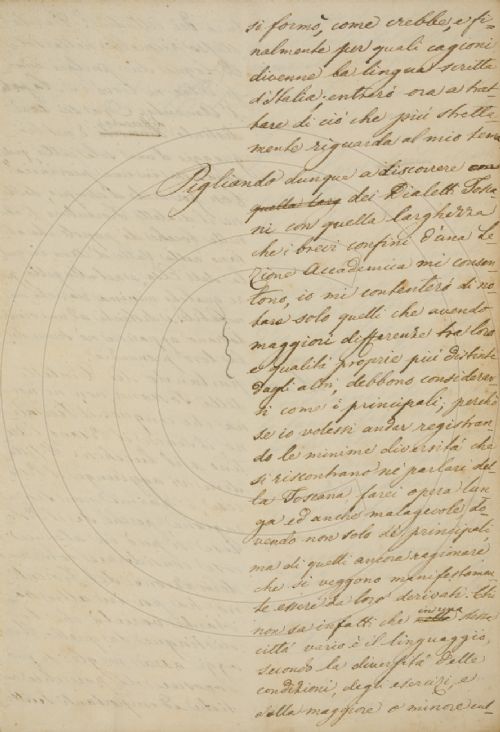 si formò, come crebbe, e fi-
nalmente per quali cagioni
divenne la lingua scritta
d'Italia entrerò ora a trat
tare di ciò che più stretta
mente riguarda al mio tema
Pigliando dunque a discorrere con
quella larg dei Dialetti Tosca
ni con quella larghezza
che i brevi confini d'una Le
zione Accademica mi consen
tono, io mi contenterò di no-
tare solo quelli che avendo
maggiori differenze tra loro
e qualità proprie più distinte
dagli altri, debbono considerar
si come i principali; perchè
se io volessi andar registran-
do le minime diversità che
si riscontrano ne' parlari del-
la Toscana farei opera lun
ga ed anche malagevole do-
vendo non solo de' principali,
ma di quelli ancora ragionare
che si veggono manifestamen
te essere da loro derivati. Chi
non sa infatti che in una stessa
città vario è il linguaggio,
secondo la diversità delle
condizioni, degli esercizi, e
della maggiore o minore cul-